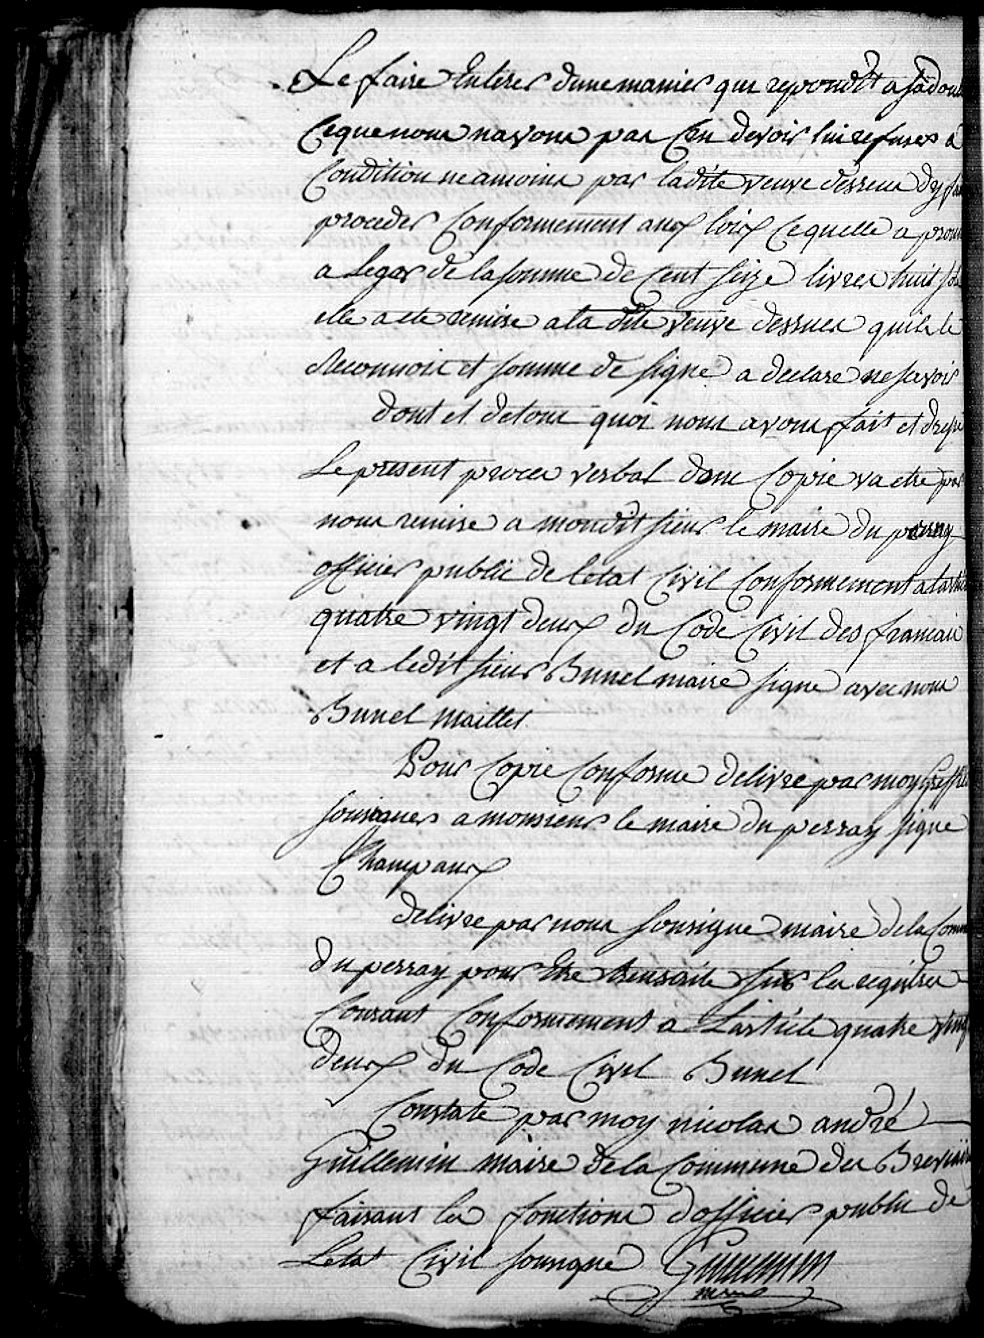 Le faire Enterer dune manier qui repondit a sa doul
Ceque nous navons pas Cru devoir lui refuser a
Condition neamoins par ladite veuve dessus dy faire
proceder Conformement aux loix Cequelle a promis
a legar de la somme de Cent seize livres huit sols
elle a ete remise a la dite veuve dessus quil le
Reconnoit et somme de signe a declare ne scavoir
dont et de tous quoi nous avons fait et dresse
Le present proces verbal dont Copie va etre par
nous remise a mondit sieur le maire du perray
officier public de letat Civil Conformement a larticle
quatre vingt deux du Code Civil des francais
et a ledit sieur Bunel maire signe avec nous
Bunel maillet
Pour Copie Conforme delivré par moy greffier
soussigner a monsieur le maire du perray signe
Champaux
delivre par nous sousigne maire de la Commune
du perray pour Etre Transcrite sur les registres
Courant Conformement a Larticle quatre vingt
deux du Code Civil Bunel
Constate par moy nicolas andré
Guillemin maire de la Commune des Breviaire
faisant les fonctions dofficier public de
Letat Civil sousigne Guillemin
maire